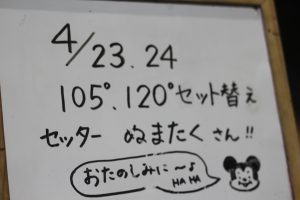 4/23.24
105°.120°セット替え
セッター ぬまたく さん!!
おたのしみに〜♪
HA HA